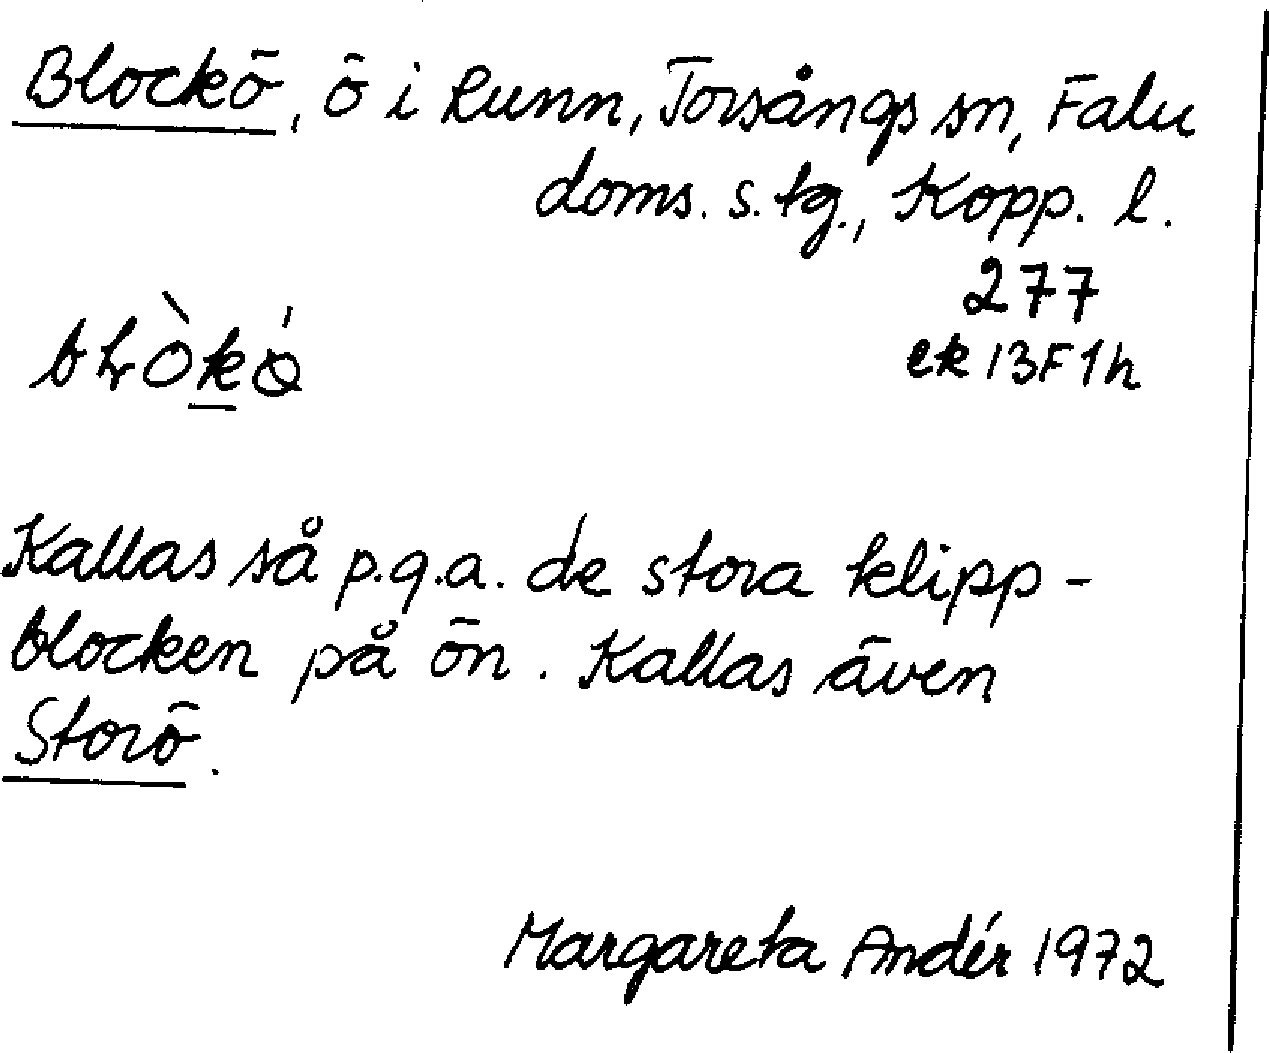 Blockö, ö i Runn, Torsångs sn, Falu
doms. s. tg., Kopp. l.
277
ek 13F1h
Kallas så p.g.a. de stora klipp-
blocken på ön. Kallas även
Storö.
Margareta Andér 1972